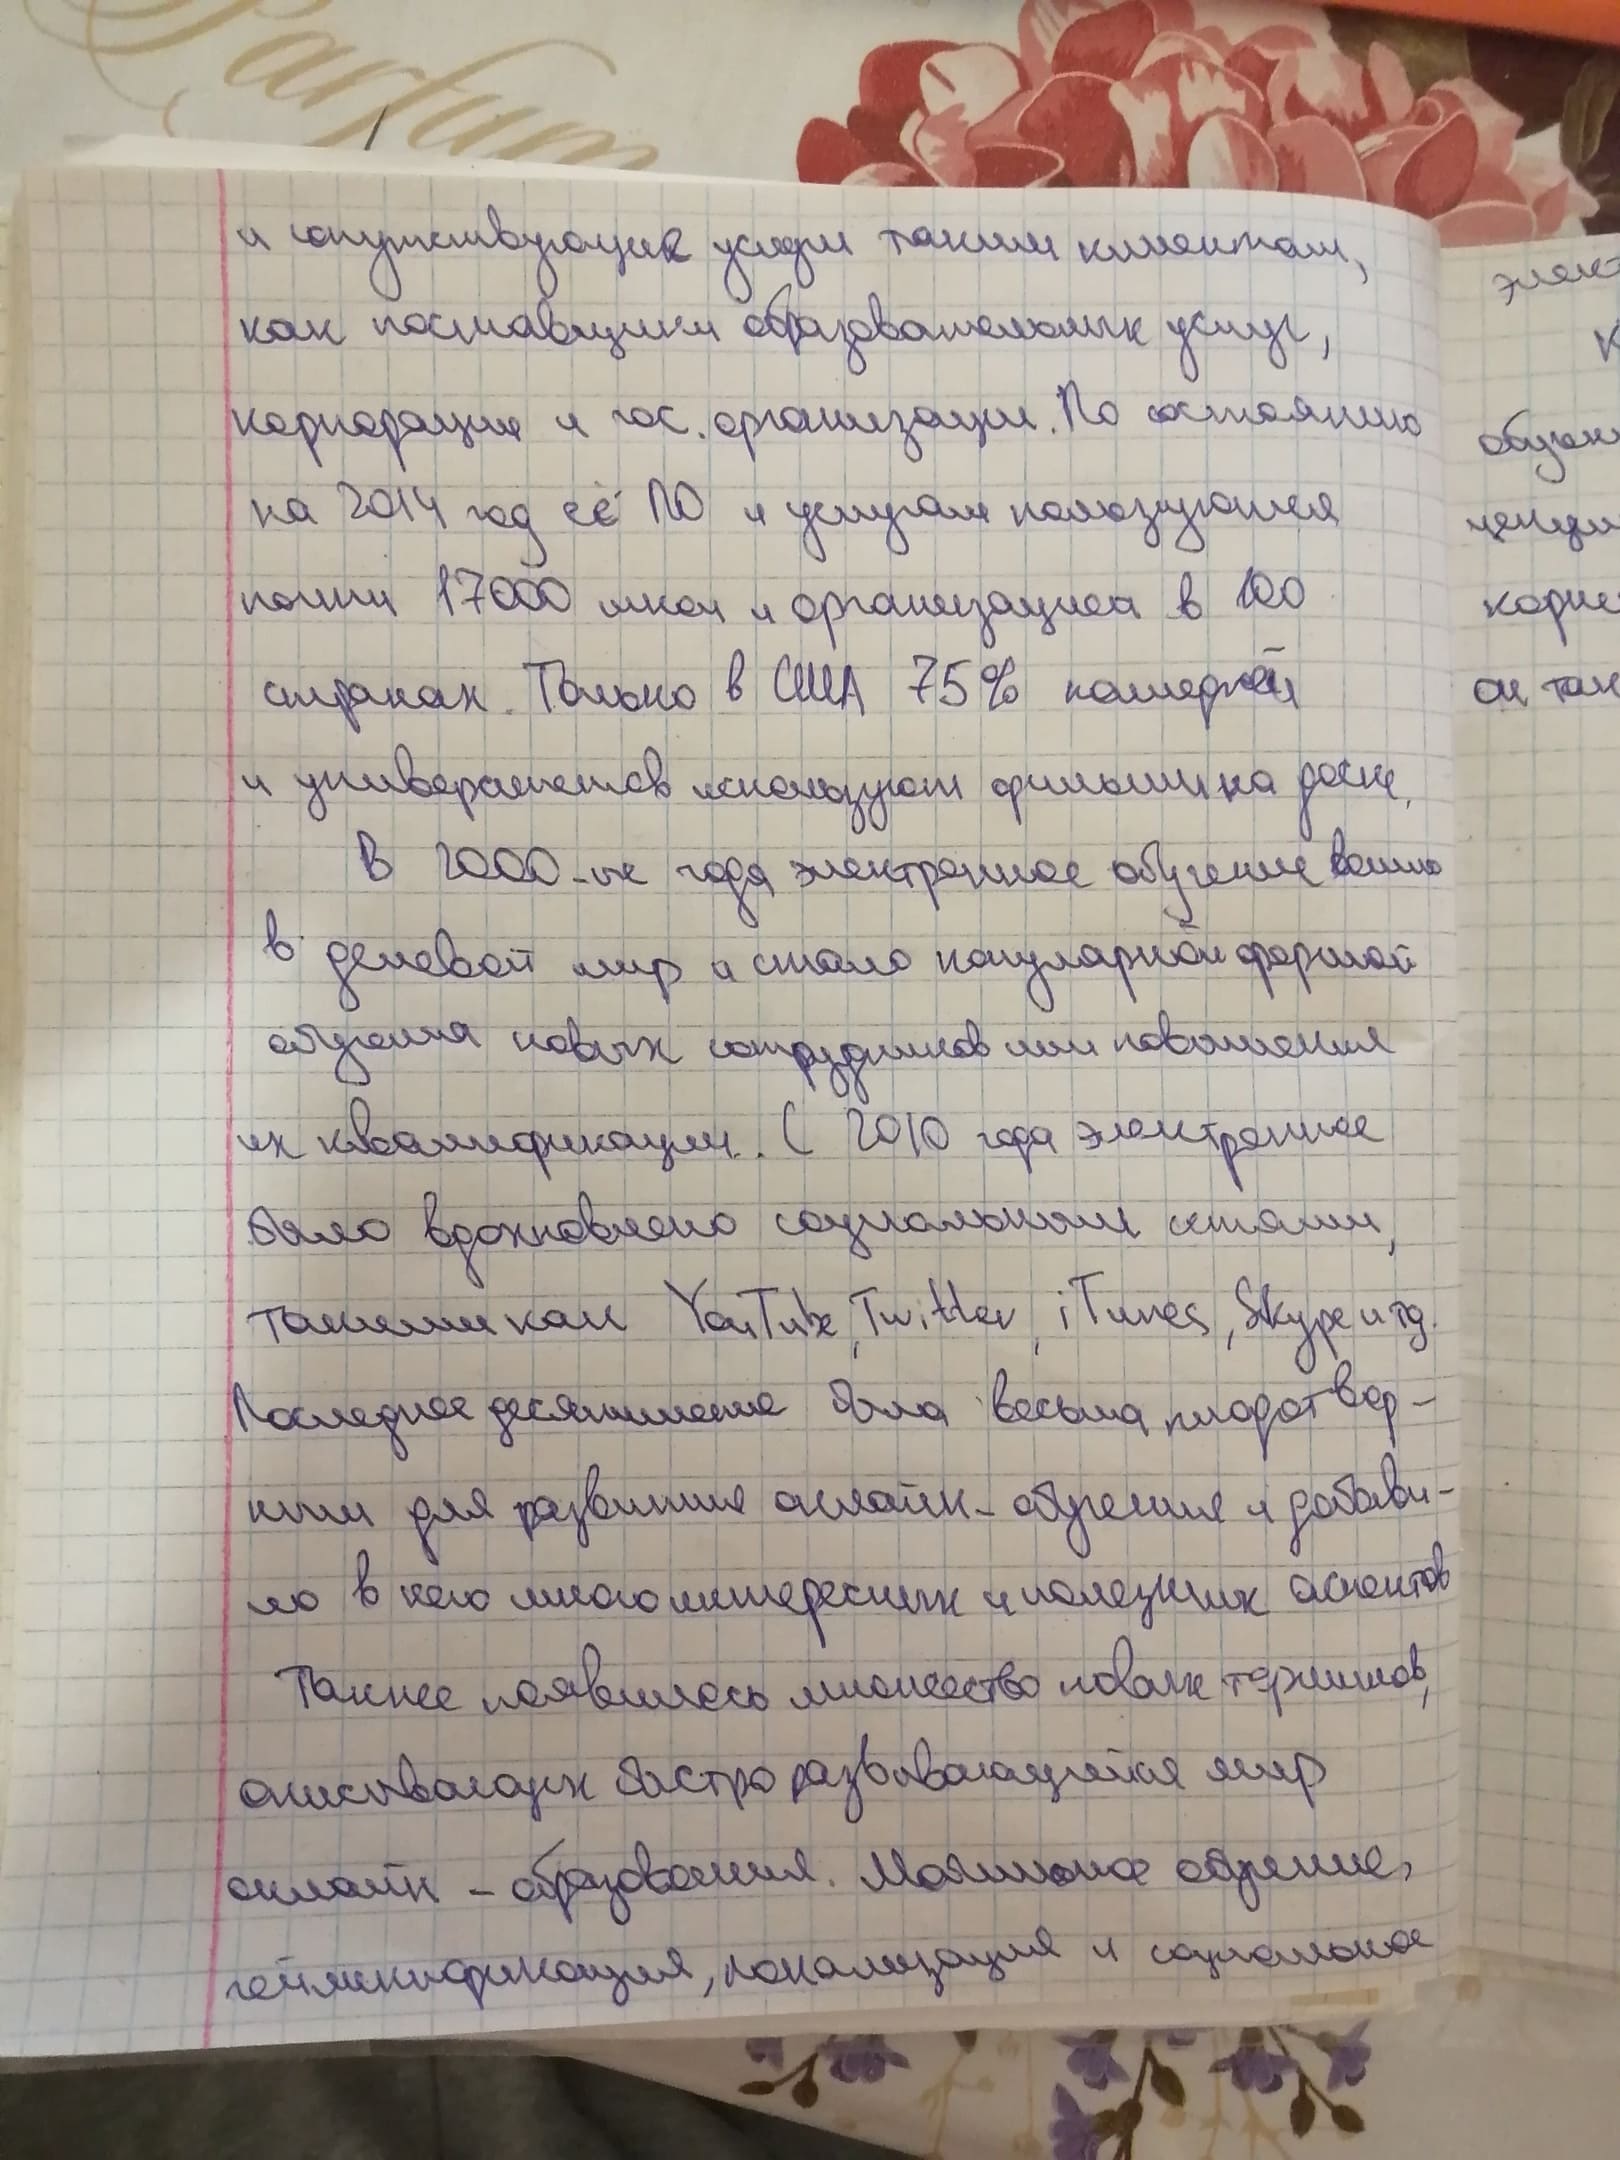 Parfum
и сопутствующие услуги таким клиентам,
как поставщики образовательных услуг,
корпорации и гос. организации. По состоянию
на 2014 год её ПО и услугами пользуются
почти 17000 школ и организациеа в 100
странах. Только в США 75% колледжей
и университетов используют фильмы на доске.
В 2000-ые годы электронное обучение вошло
в деловой мир и стало популярной формой
обучения новых сотрудников или повышения
их квалификации. С 2010 года электронное
было вдохновлено социальными сетями,
такими как YouTube, Twitter, iTunes, Skype и тд.
Последнее десятилетие было весьма плодотвор-
ным для развития онлайн-обучения и добави-
ло в него много интересных и полезных аспектов
Также появилось множество новых терминов,
описывающих быстро развивающийся мир
онлайн-образования. Мобильное обучение,
геймификация, локализация и социальное
элект
К
обучен
лекци
корне
он так